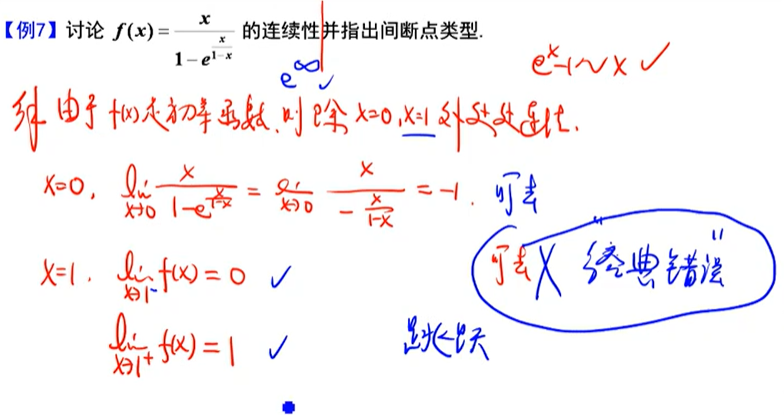 【例7】讨论 f(x) = x / (1 - e^{x/(1-x)}) 的连续性并指出间断点类型.
e^∞ ✓
e^x-1~x ✓
解 由于f(x)是初等函数,则除x=0,x=1外处处连续.
x=0, lim_{x→0} x / (1-e^{x/(1-x)}) = lim_{x→0} x / (-x/(1-x)) = -1. 可去
可去 X "经典错误"
x=1. lim_{x→1^-} f(x) = 0 ✓
lim_{x→1^+} f(x) = 1 ✓ 跳跃